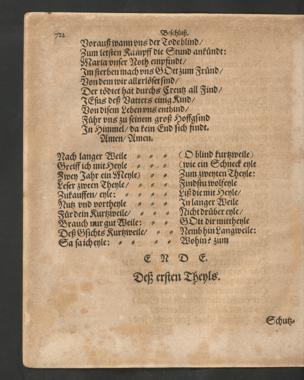 722 Beschluß.
Vorauß wann vns der Todt blind/
Zum letsten Kampff die Stund ankündt:
Maria vnser Noth empfindt/
Im sterben mach vns GOtt zum Fründ/
Von dem wir all erlöset sind/
Der tödtet hat durchs Creutz all Sind/
JEsus deß Vatters einig Kind/
Von disem Leben vns entbind/
Führ vns zu seinem groß Hoffgsind
In Himmel/ da kein End sich findt.
Amen/ Amen.
Nach langer Weile / O blind kurtzweile/
Greiff ich mit Heyle / wie ein Schneck eyle
Zwey Jahr ein Meyle) Zum zweyten Theyle:
Leser zween Theyle/ Findst im wolfeyle
Zukauffen/ eyle: Liß die mit Heyle/
Nutz vnd vortheyle In langer Weile
Für dein Kurtzweile/ Nicht drüber eyle/
Brauch nur gut Weile: GOtt dir mittheyle
Deß Gsichts Kurtzweile/ Nemb hin Langweile:
Sa sa ich eyle: Wohin? zum
E N D E.
Deß ersten Theyls.
Schutz-